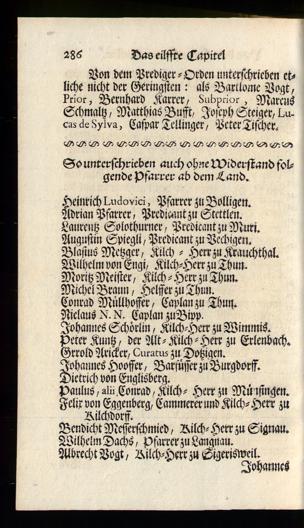 286 Das eilffte Capitel
Von dem Prediger-Orden unterschrieben et-
liche nicht der Geringsten: als Barilome Vogt,
Prior, Bernhard Karrer, Subprior, Marcus
Schmaltz, Matthias Bufft, Joseph Steiger, Lu-
cas de Sylva, Caspar Tellinger, Peter Tischer.
So unterschrieben auch ohne Widerstand fol-
gende Pfarrer ab dem Land.
Heinrich Ludovici, Pfarrer zu Bolligen.
Adrian Pfarrer, Predicant zu Stettlen.
Laurentz Solothurner, Predicant zu Muri.
Augustin Spiegli, Predicant zu Vechigen.
Blasius Metzger, Kilch-Herr zu Krauchthal.
Wilhelm von Engi, Kilch-Herr zu Thun.
Moritz Meister, Kilch-Herr zu Thun.
Michel Braun, Helffer zu Thun.
Conrad Müllhoffer, Caplan zu Thun.
Niclaus N. N. Caplan zu Bipp.
Johannes Schörlin, Kilch-Herr zu Wimmis.
Peter Kuntz, der Alt-Kilch-Herr zu Erlenbach.
Johannes Hooffer, Barfüsser zu Burgdorff.
Dietrich von Englisberg.
Paulus, alii Conrad, Kilch-Herr zu Münsingen.
Felix von Eggenberg, Cammerer und Kilch-Herr zu
Kilchdorff.
Bendicht Messerschmied, Kilch-Herr zu Signau.
Wilhelm Dachs, Pfarrer zu Langnau.
Albrecht Vogt, Kilch-Herr zu Sigerisweil.
Johannes